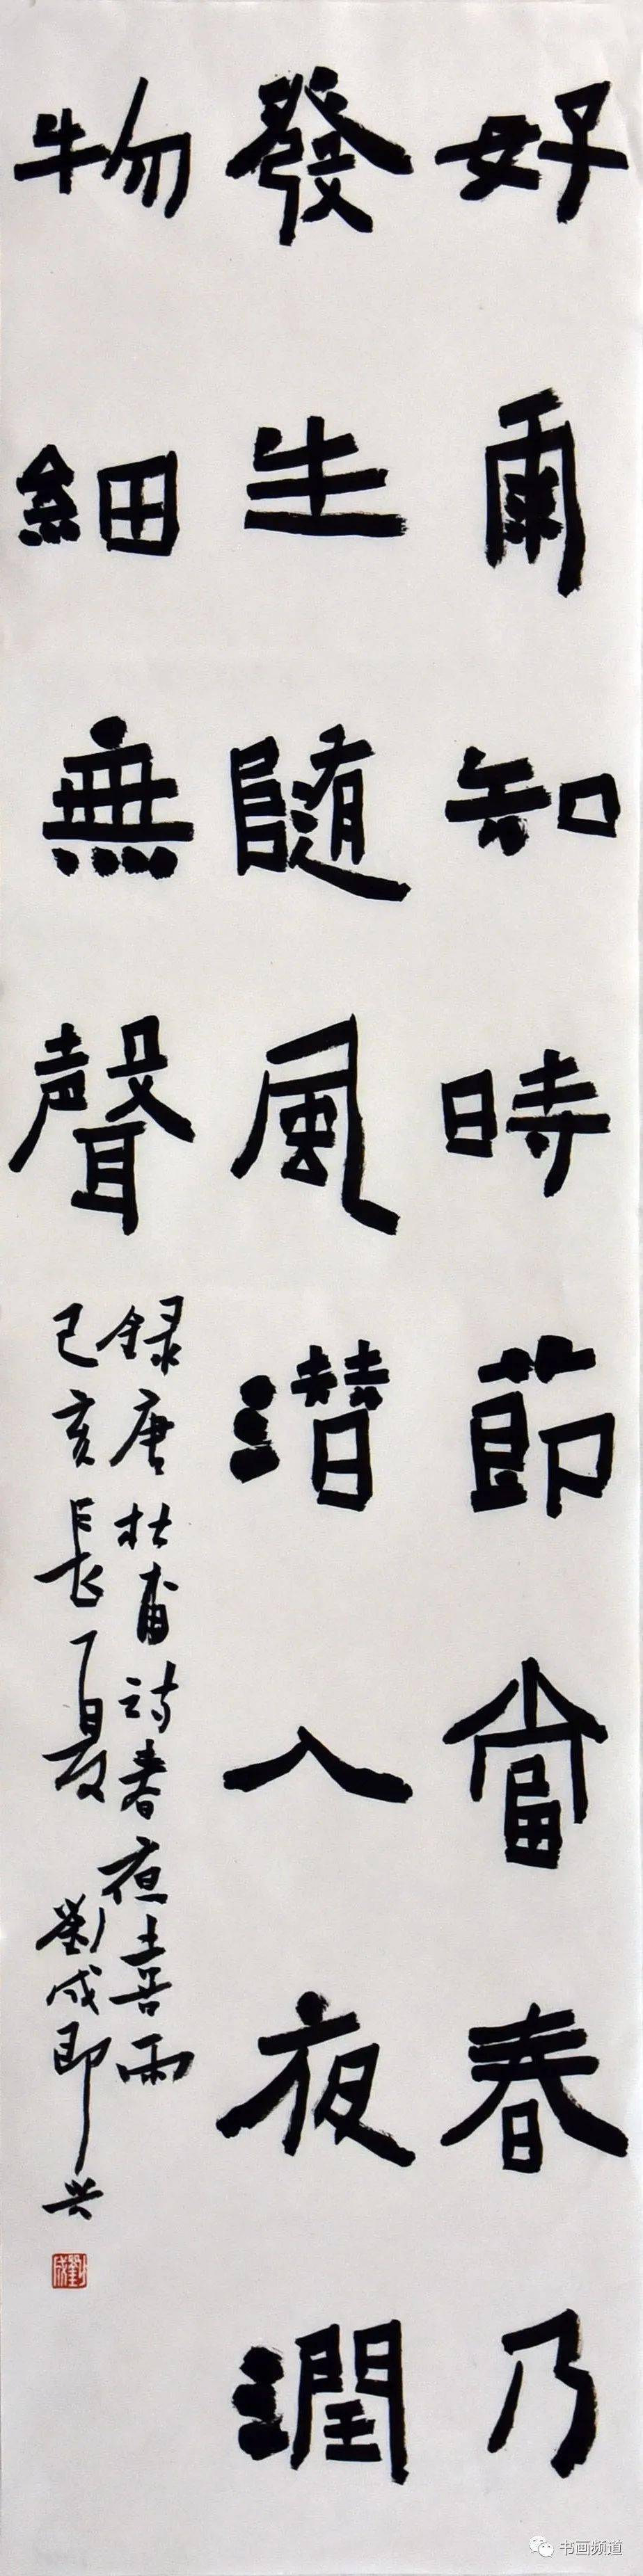 好雨知時節當春乃
發生随風潜入夜潤
物細無聲
録唐杜甫詩春夜喜雨
己亥長夏劉成即兴
劉成
书画频道